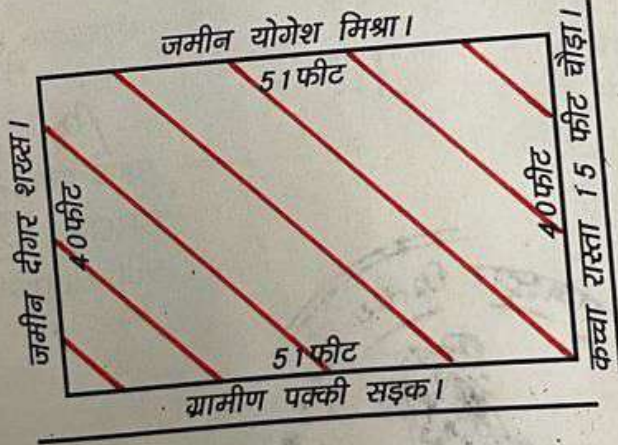 जमीन योगेश मिश्रा।
51फीट
जमीन दीगर शख्स।
40फीट
40फीट
कच्चा रास्ता 15 फीट चौड़ा।
51फीट
ग्रामीण पक्की सड़क।